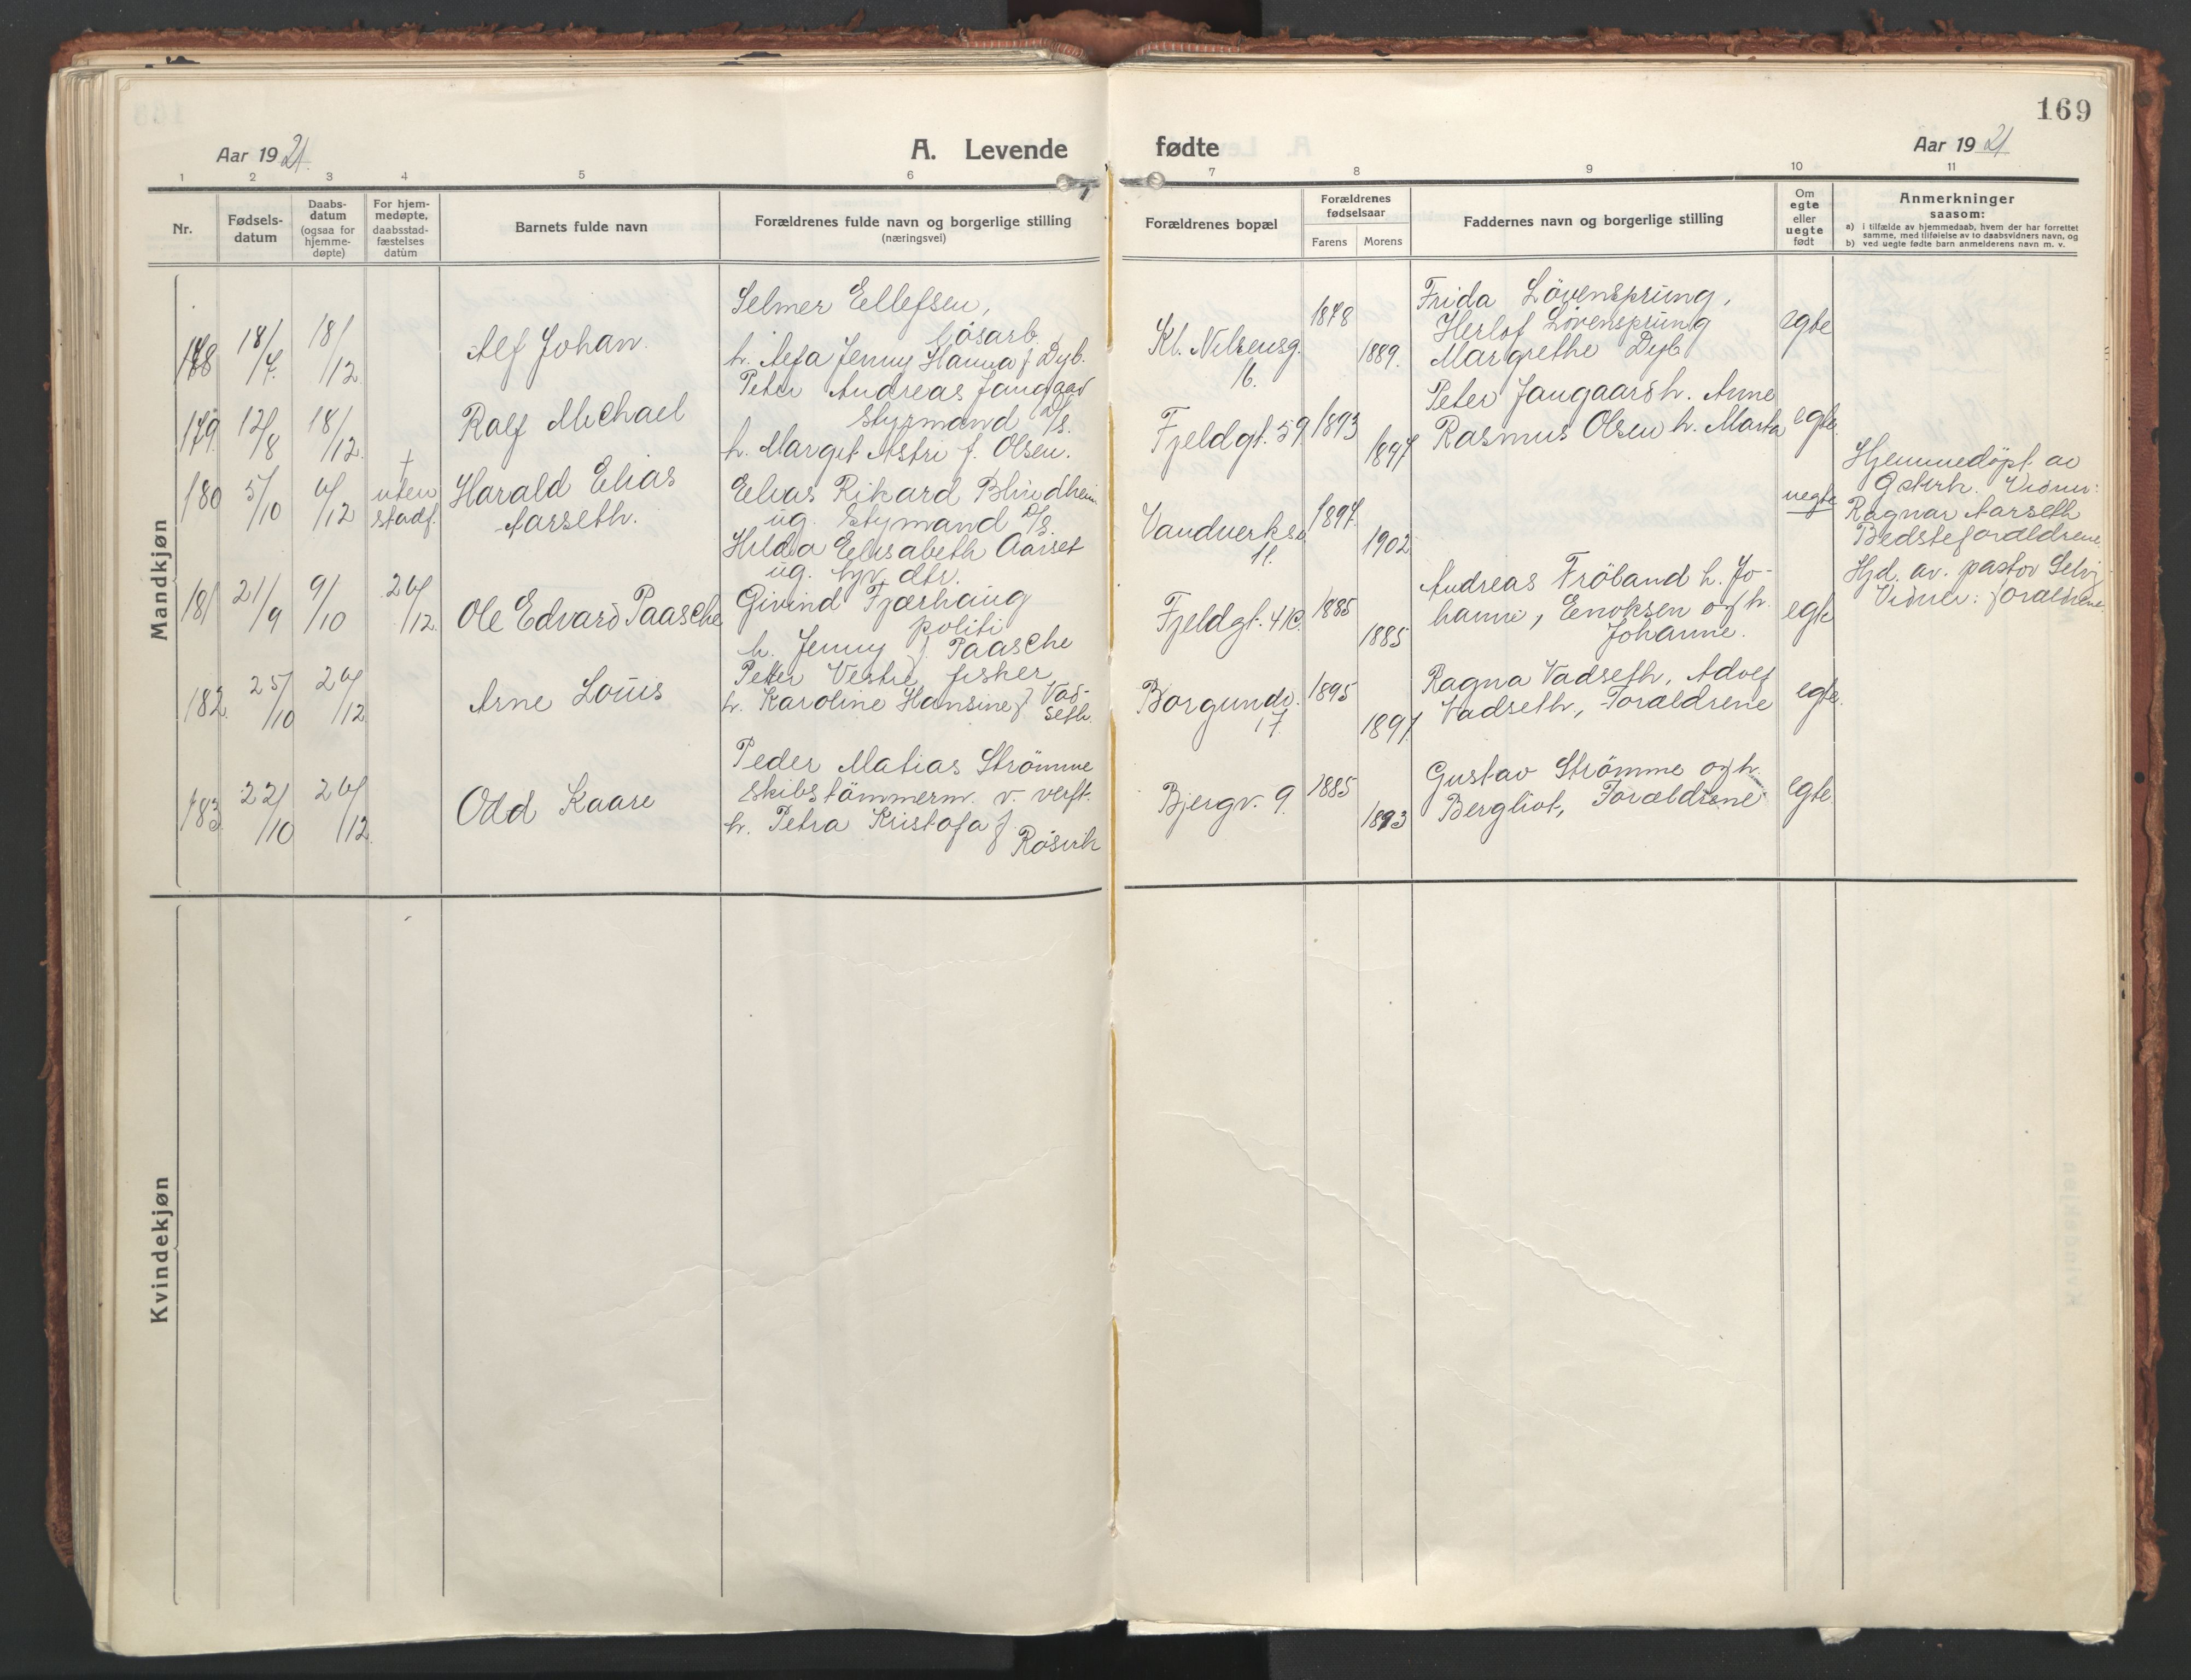 169
Aar 1921.
A. Levende fødte
Aar 1921
1 2 3 4 5 6 7 8 9 10 11
Nr.
Fødsels-
datum
Daabs-
datum
(ogsaa for
hjemme-
døpte)
For hjem-
medøpte,
daabsstad-
fæstelses
datum
Barnets fulde navn
Forældrenes fulde navn og borgerlige stilling
(næringsvei)
Forældrenes bopæl
Forældrenes
fødselsaar
Farens Morens
Faddernes navn og borgerlige stilling
Om
egte
eller
uegte
født
Anmerkninger
saasom:
a) i tilfælde av hjemmedaab, hvem der har forrettet
samme, med tilføielse av to daabsvidners navn, og
b) ved uegte fødte barn anmelderens navn m. v.
Mandkjøn
178 18/7. 18/12.
Alf Johan.
Selmer Ellefsen,
løsarb.
h. Jenny Hanna f. Dyb.
Kl. Nilsensg.
16.
1878
1889.
Frida Lövensprung,
Herlof Lövensprung
Margrethe Dyb
egte
179 12/8 18/12.
Ralf Michael
Peter Andreas Jangaard
styrmand D/S.
h. Margit Astri f. Olsen.
Fjeldgt. 59
1893
1897
Peter Jangaard h. Anne
Rasmus Olsen h. Marta
egte.
180 5/10 6/12
†
uten
stadf.
Harald Elias
Aarseth.
Elias Rikard Blindheim
ug. Stymand D/S.
Hilda Elisabeth Aarset
ug. hjv. dtr.
Vandverksv.
11.
1897.
1902
uegte
Hjemmedöpt av
Gsterk. Vidner:
Ragnar Aarseth
Bedsteforældrene.
181 21/9 9/10 26/12
Ole Edvard Paasche
Eivind Fjærhaug
politi
h. Jenny f. Paasche
Fjeldgt. 41c.
1885
1885
Andreas Fröland h. Jo-
hanne, Enoksen og h.
Johanne.
egte
Hjd. av. pastor Selvig
Vidner: forældrene.
182. 25/10 26/12
Arne Louis
Petter Vestre, fisker,
h. Karoline Hansine f. Vad-
seth.
Borgundv.
17.
1895
1897.
Ragna Vadseth, Adolf
Vadseth, Forældrene
egte.
183 22/10 26/12.
Odd Kaare
Peder Matias Strömme
skibstömmerm. v. verft.
h. Petra Kristofa f.
Røsvik
Bjergv. 9.
1885
1893
Gustav Strömme og h.
Bergliot, Forældrene
egte
Kvindekjøn